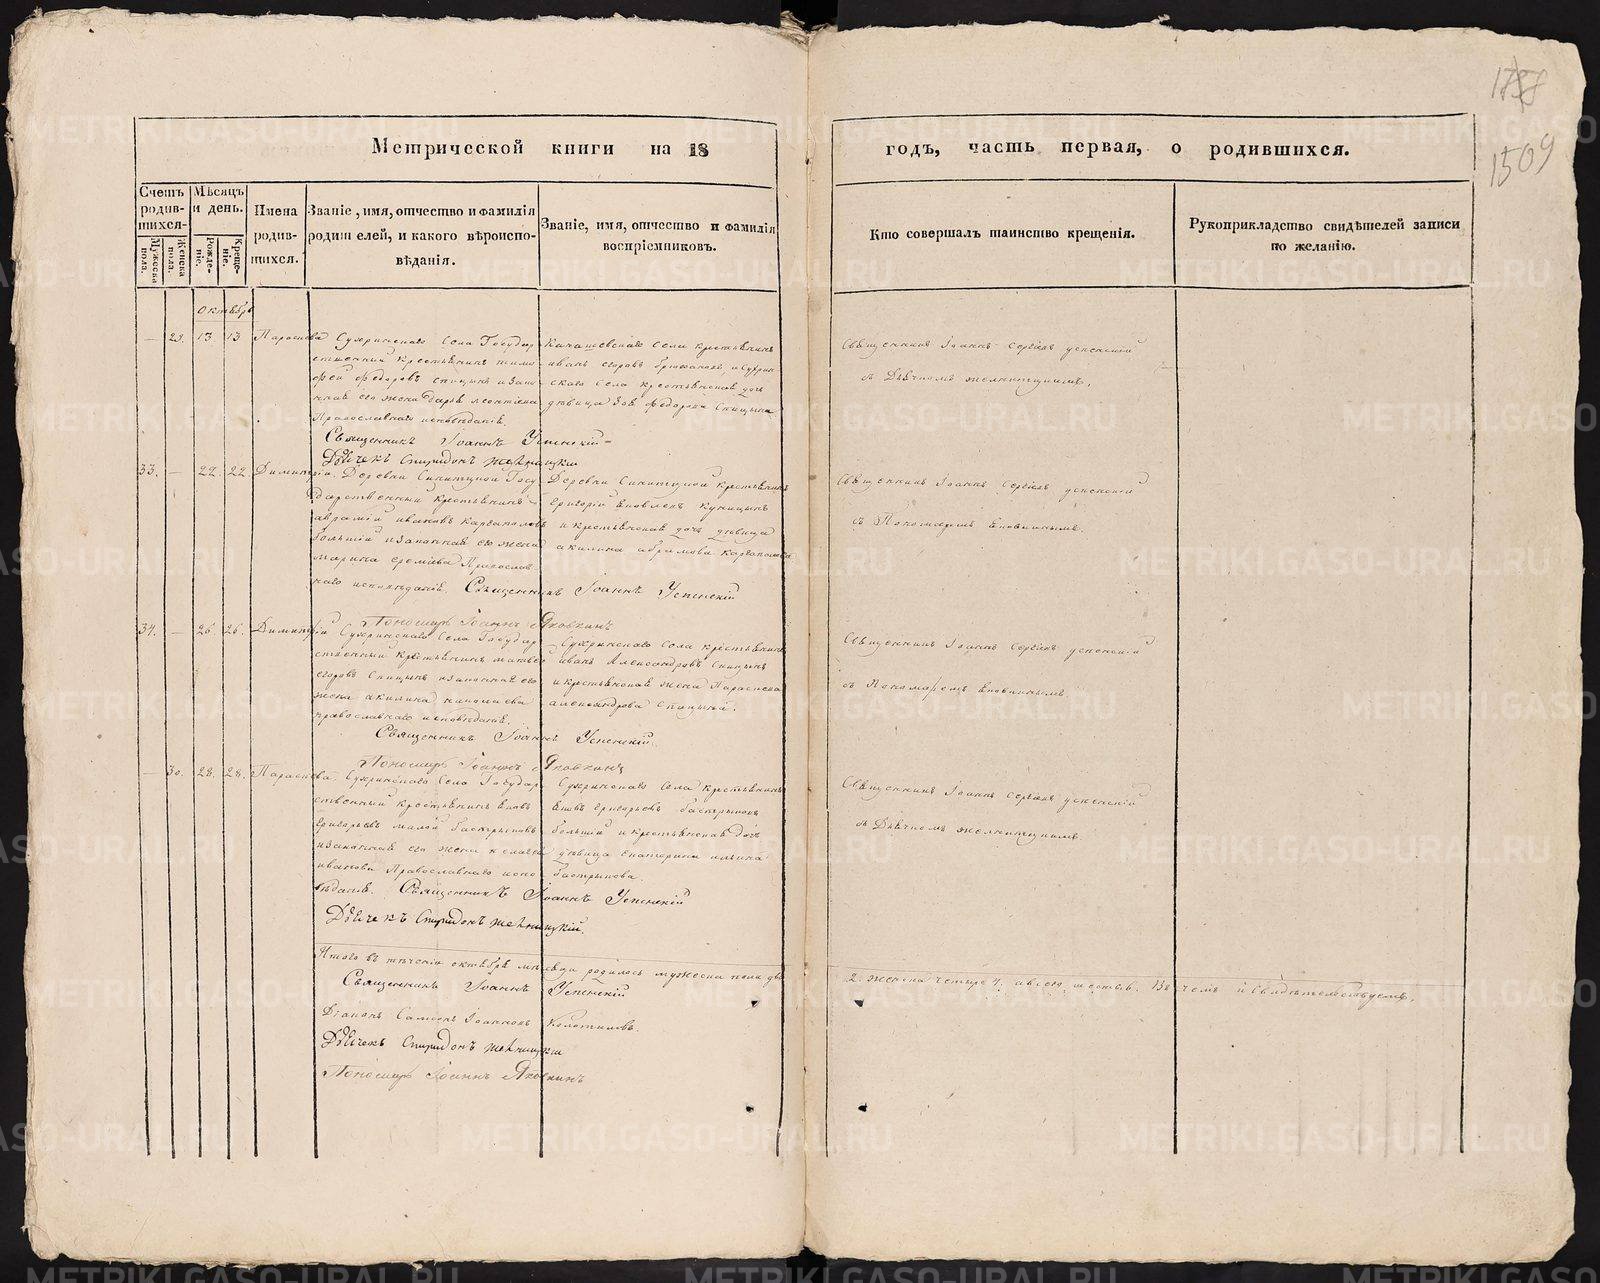 1788
1509
Метрической книги на 18
годъ, часть первая, о родившихся.
Счетъ родив-шихся.
Мужеска пола.
Женска пола.
Мѣсяцъ и день.
Рожде-ніе.
Креще-ніе.
Имена родив-шихся.
Званіе, имя, отчество и фамилія
родителей, и какого вѣроиспо-
вѣданія.
Званіе, имя, отчество и фамилія
воспріемниковъ.
Кто совершалъ таинство крещенія.
Рукоприкладство свидѣтелей записи
по желанію.
октябрь
— 29. 13 13 Параскева
Сухринскаго Села Государ
ственный крестьянинъ тимо
фей Федоровъ спицынъ и зако
нная его жена дарья леонтьева
Православнаго исповѣданія.
Священникъ Іоаннъ Успенскій
Дьячекъ Спиридонъ
крестьянинъ
иванъ егоровъ и Сухрин
скаго Села крестьянская дочь
дѣвица Федорова Спицына
Священникъ Іоаннъ Сергіевъ успенскій
съ Дьячкомъ
33. — 22. 22 Димитрій
Деревни Госу
дарственный крестьянинъ
аврамій ивановъ каргаполовъ
большій и законная его жена
марина еремѣева Православ
наго исповѣданія. Священникъ Іоаннъ Успенскій
Пономарь Іоаннъ Яковкинъ
Деревни крестьянинъ
Григорій Яковлевъ
и крестьянская дочь дѣвица
акилина абрамова каргаполова
Священникъ Іоаннъ Сергіевъ успенскій
съ Пономаремъ Яковкинымъ.
34. — 26 26. Димитрій
Сухринскаго Села Государ
ственный крестьянинъ матвей
егоровъ Спицынъ и законная его
жена акилина
православнаго исповѣданія.
Священникъ Іоаннъ Успенскій.
Пономарь Іоаннъ Яковкинъ
Сухринскаго Села крестьянинъ
иванъ Александровъ Спицынъ
и крестьянская жена Параскева
александрова Спицына.
Священникъ Іоаннъ Сергіевъ успенскій
съ Пономаремъ Яковкинымъ
— 30. 28. 28. Параскева
Сухринскаго Села Государ
ственный крестьянинъ яковъ
Григорьевъ малой бастрыковъ
и законная его жена
иванова Православнаго испо
вѣданія. Священникъ Іоаннъ Успенскій
Дьячекъ Спиридонъ
Сухринскаго Села крестьянинъ
яковъ Григорьевъ бастрыковъ
большій и крестьянская дочь
дѣвица екатерина ильина
бастрыкова.
Священникъ Іоаннъ Сергіевъ успенскій
съ Дьячкомъ
Итого въ теченіи октября мѣсяца родилось мужеска пола два
2. женска четыре 4. а всего шесть 6. въ чемъ и Свидѣтельствуемъ.
Священникъ Іоаннъ Успенскій
Діаконъ Самсонъ Іоанновъ
Дьячекъ Спиридонъ
Пономарь Іоаннъ Яковкинъ
METRIKI.GASO-URAL.RU